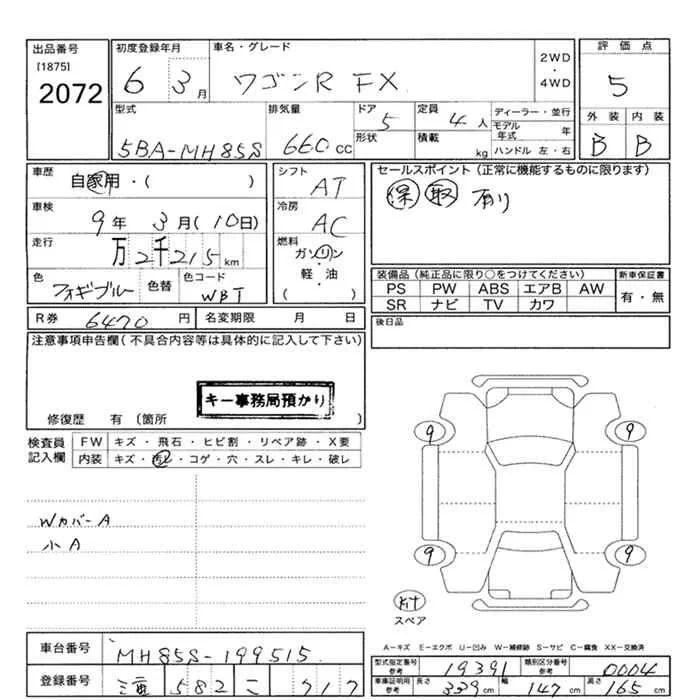 出品番号
[1875]
2072
初度登録年月
6 3月
車名・グレード
ワゴンR FX
2WD
・
4WD
評価点
5
型式
5BA-MH85S
排気量
660cc
ドア
5
形状
定員
4人
積載
kg
ディーラー・並行
モデル年式 年
ハンドル 左・右
外装 内装
B B
車歴
自家用・( )
シフト
AT
車検
9年 3月(10日)
冷房
AC
走行
万 2千215km
燃料
ガソリン
・
軽・油
( )
色
フォギブルー
色替
色コード
WBT
R券 6470円
名変期限 月 日
セールスポイント(正常に機能するものに限ります)
保 取 有り
装備品(純正品に限り○をつけてください)
PS PW ABS エアB AW
SR ナビ TV カワ
新車保証書
有・無
後日品
注意事項申告欄(不具合内容等は具体的に記入して下さい)
キー事務局預かり
修復歴 有(箇所 )
検査員記入欄
FW キズ・飛石・ヒビ割・リペア跡・X要
内装 キズ・汚レ・コゲ・穴・スレ・キレ・破レ
WカバーA
小A
9 9
9 9
スペア
A-キズ E-エクボ U-凹み W-補修跡 S-サビ C-腐食 XX-交換済
車台番号
MH85S-199515
登録番号
582 こ 717
型式指定番号 参考
19391
類別区分番号 参考
0004
車庫証明用 参考
長さ 339cm
幅 147cm
高さ 165cm